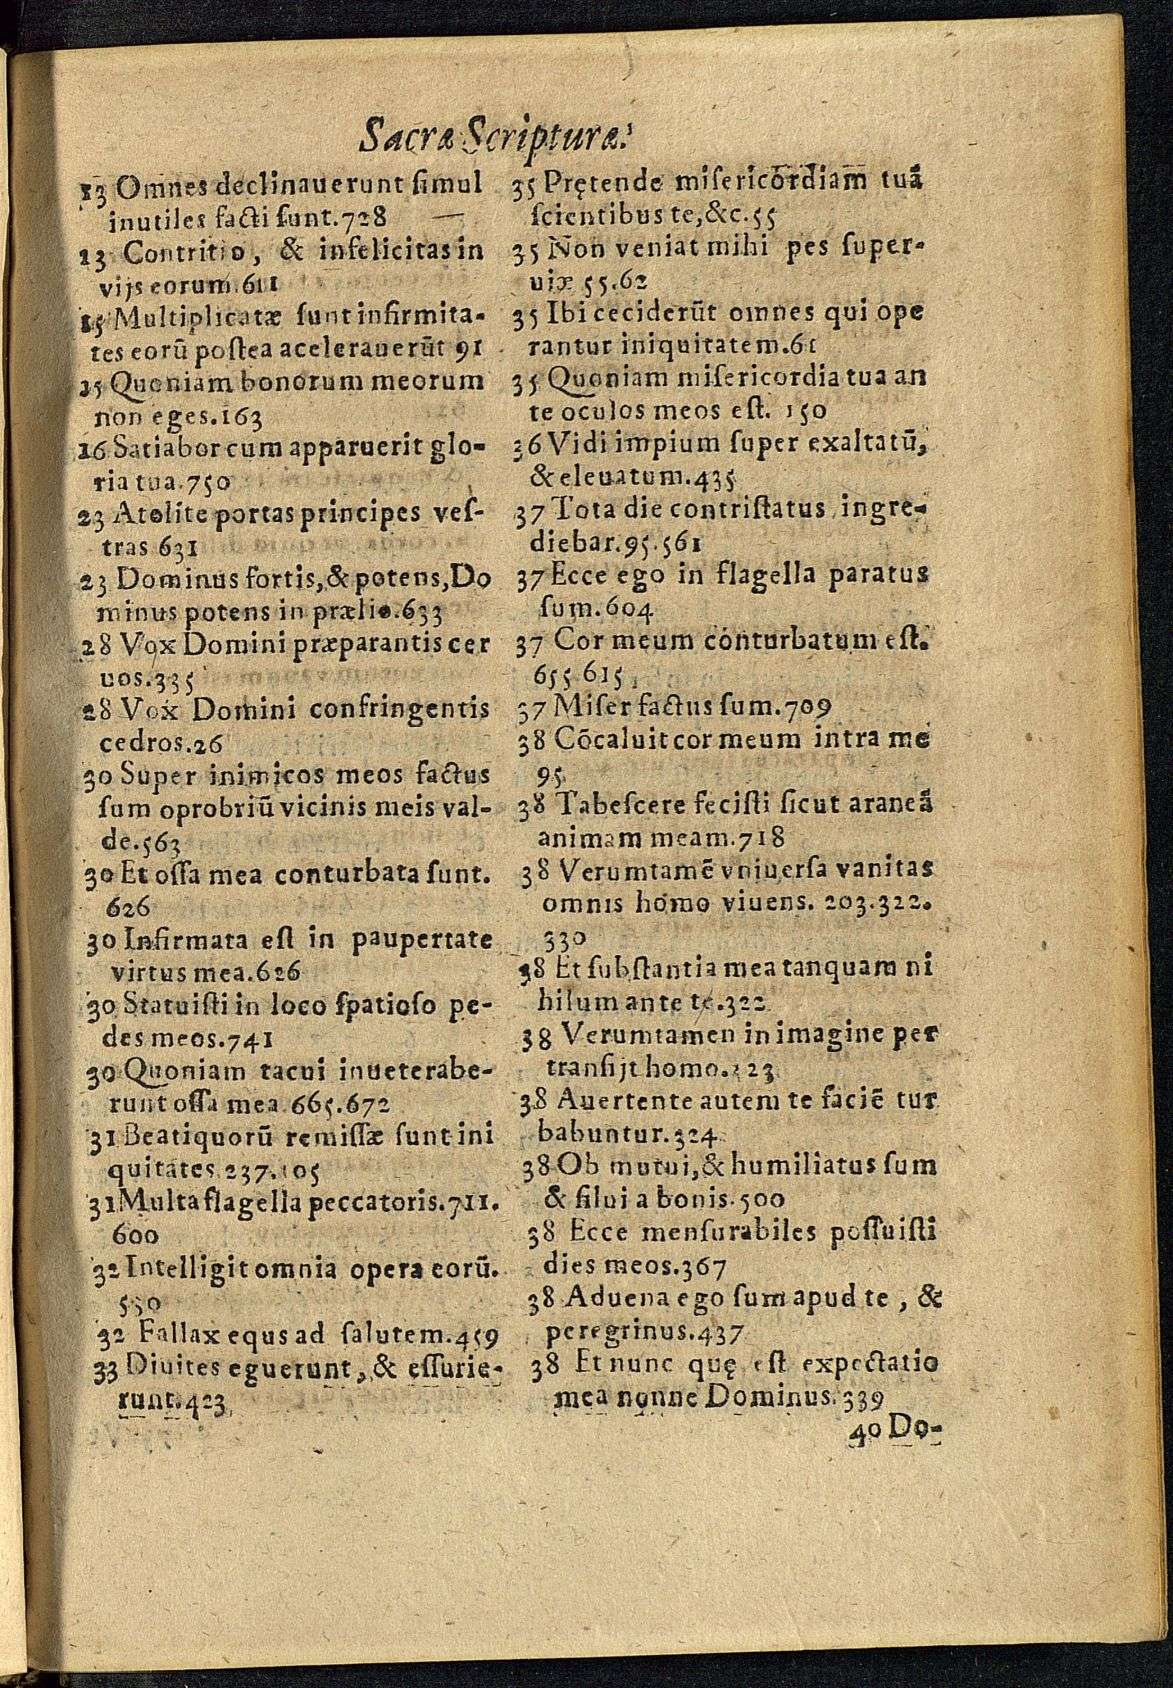 Sacræ Scripturæ.
13 Omnes declinauerunt simul
inutiles facti sunt.728
13 Contritio, & infelicitas in
vijs eorum.611
15 Multiplicatæ sunt infirmita-
tes eorū postea acelerauerūt 91
15 Quoniam bonorum meorum
non eges.163
16 Satiabor cum apparuerit glo-
ria tua.750
23 Atolite portas principes ves-
tras 631
23 Dominus fortis, & potens, Do
minus potens in prælio.633
28 Vox Domini præparantis cer
uos.335
28 Vox Domini confringentis
cedros.26
30 Super inimicos meos factus
sum oprobriū vicinis meis val-
de.563
30 Et ossa mea conturbata sunt.
626
30 Infirmata est in paupertate
virtus mea.626
30 Statuisti in loco spatioso pe-
des meos.741
30 Quoniam tacui inueterabe-
runt ossa mea.665.672
31 Beati quorū remissæ sunt ini
quitates.237.105
31 Multa flagella peccatoris.711.
600
32 Intelligit omnia opera eorū.
550
32 Fallax equs ad salutem.459
33 Diuites eguerunt, & essurie-
runt.423
35 Prętende misericordiam tuā
scientibus te, &c.55
35 Non veniat mihi pes super-
uiæ 55.62
35 Ibi ceciderūt omnes qui ope
rantur iniquitatem.61
35 Quoniam misericordia tua an
te oculos meos est. 150
36 Vidi impium super exaltatū,
& eleuatum.435
37 Tota die contristatus ingre-
diebar.95.561
37 Ecce ego in flagella paratus
sum.604
37 Cor meum conturbatum est.
655.615
37 Miser factus sum.709
38 Cōcaluit cor meum intra me
95
38 Tabescere fecisti sicut araneā
animam meam.718
38 Verumtamē vniuersa vanitas
omnis homo viuens. 203.322.
330
38 Et substantia mea tanquam ni
hilum ante te.322
38 Verumtamen in imagine per
transijt homo. 23
38 Auertente autem te faciē tur
babuntur.324
38 Ob mutui, & humiliatus sum
& silui a bonis.500
38 Ecce mensurabiles possuisti
dies meos.367
38 Aduena ego sum apud te, &
peregrinus.437
38 Et nunc quę est expectatio
mea nonne Dominus.339
40 Do-